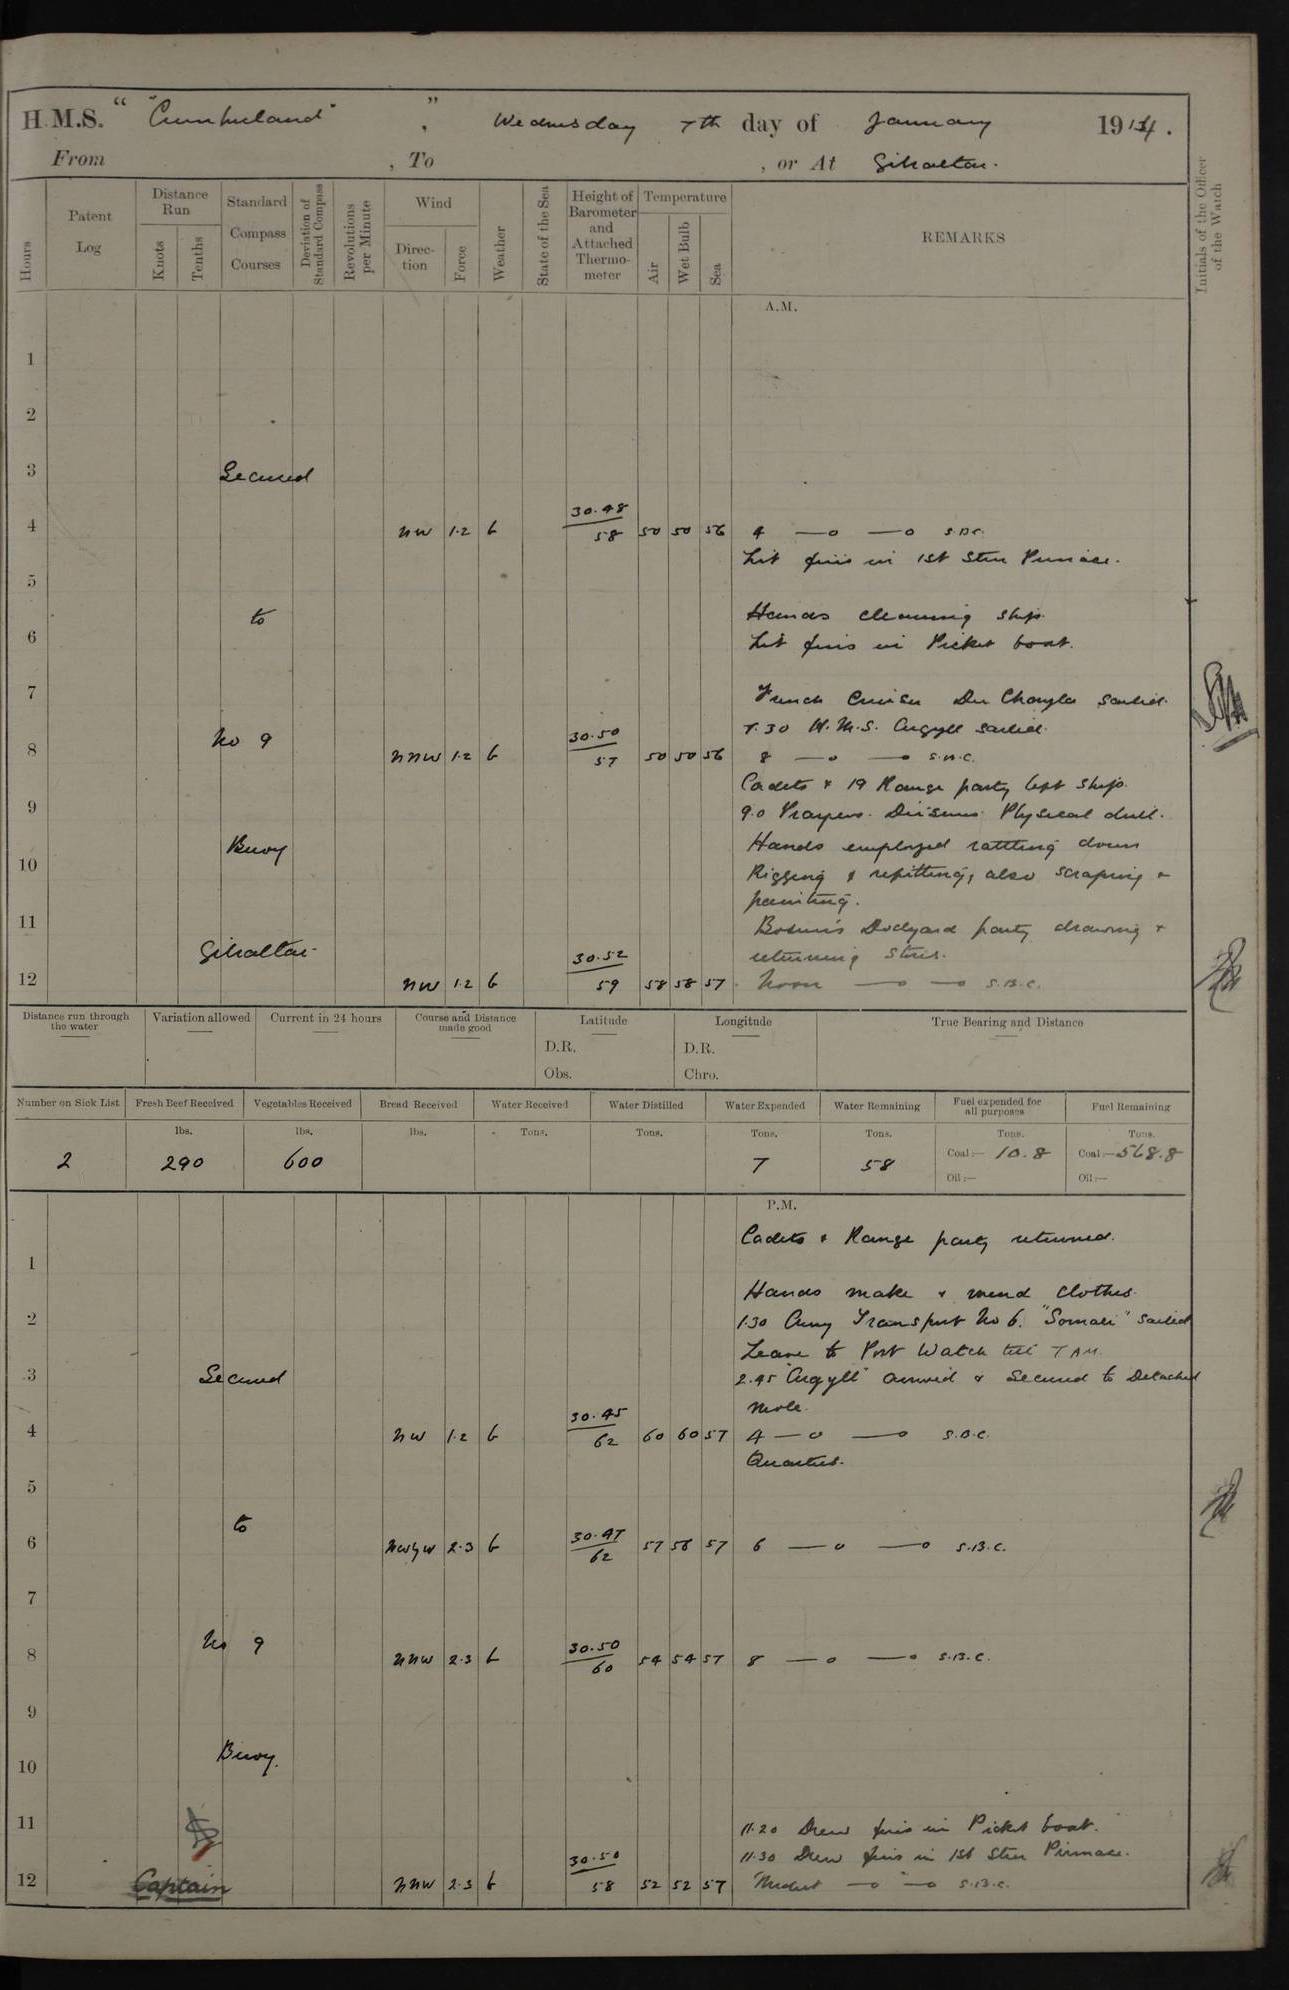 H.M.S. " "Cumberland" ", Wednesday 7th day of January 1914.
From , To , or At Gibraltar.
Hours
Patent Log
Distance Run
Knots
Tenths
Standard Compass Courses
Deviation of Standard Compass
Revolutions per Minute
Wind
Direction
Force
Weather
State of the Sea
Height of Barometer and Attached Thermometer
Temperature
Air
Wet Bulb
Sea
REMARKS
Initials of the Officer of the Watch
A.M.
1
2
3 Secured
4 NW 1.2 b 30.48 58 50 50 56 4 —o —o S.B.C.
Lit fires in 1st Stm Pinnace.
5
to Hands cleaning ship.
6 Lit fires in Picket boat.
7 French Cruiser Du Chayla sailed.
7.30 H.M.S. Argyll sailed.
No 9
8 NNW 1.2 b 30.50 57 50 50 56 8 —o —o S.B.C.
Cadets & 19 Range party left ship.
9 9.0 Prayers. Divisions. Physical drill.
Buoy Hands employed rattling down
10 Rigging & refitting, also scraping &
painting.
11 Bosun's Dockyard party drawing &
Gibraltar. returning Stores.
12 NW 1.2 b 30.52 59 58 58 57 Noon —o —o S.B.C.
Distance run through the water
Variation allowed
Current in 24 hours
Course and Distance made good
Latitude
D.R.
Obs.
Longitude
D.R.
Chro.
True Bearing and Distance
Number on Sick List
Fresh Beef Received
Vegetables Received
Bread Received
Water Received
Water Distilled
Water Expended
Water Remaining
Fuel expended for all purposes
Fuel Remaining
lbs. lbs. lbs. Tons. Tons. Tons. Tons. Tons. Tons.
2 290 600 7 58 Coal:— 10.8 Coal:— 568.8
Oil:— Oil:—
P.M.
Cadets & Range party returned.
1
Hands make & mend clothes.
2 1.30 Army Transport No 6. "Somali" sailed
Leave to Port Watch till 7 AM.
3 Secured 2.45 "Argyll" arrived & Secured to Detached
Mole.
4 NW 1.2 b 30.45 62 60 60 57 4 —o —o S.B.C.
Quarters.
5
to
6 NWbyW 2.3 b 30.47 62 57 56 57 6 —o —o S.B.C.
7
No 9
8 NNW 2.3 b 30.50 60 54 54 57 8 —o —o S.B.C.
9
Buoy.
10
11 11.20 Drew fires in Picket boat.
11.30 Drew fires in 1st Stm Pinnace.
12 Captain NNW 2.3 b 30.50 58 52 52 57 Midnt —o —o S.B.C.